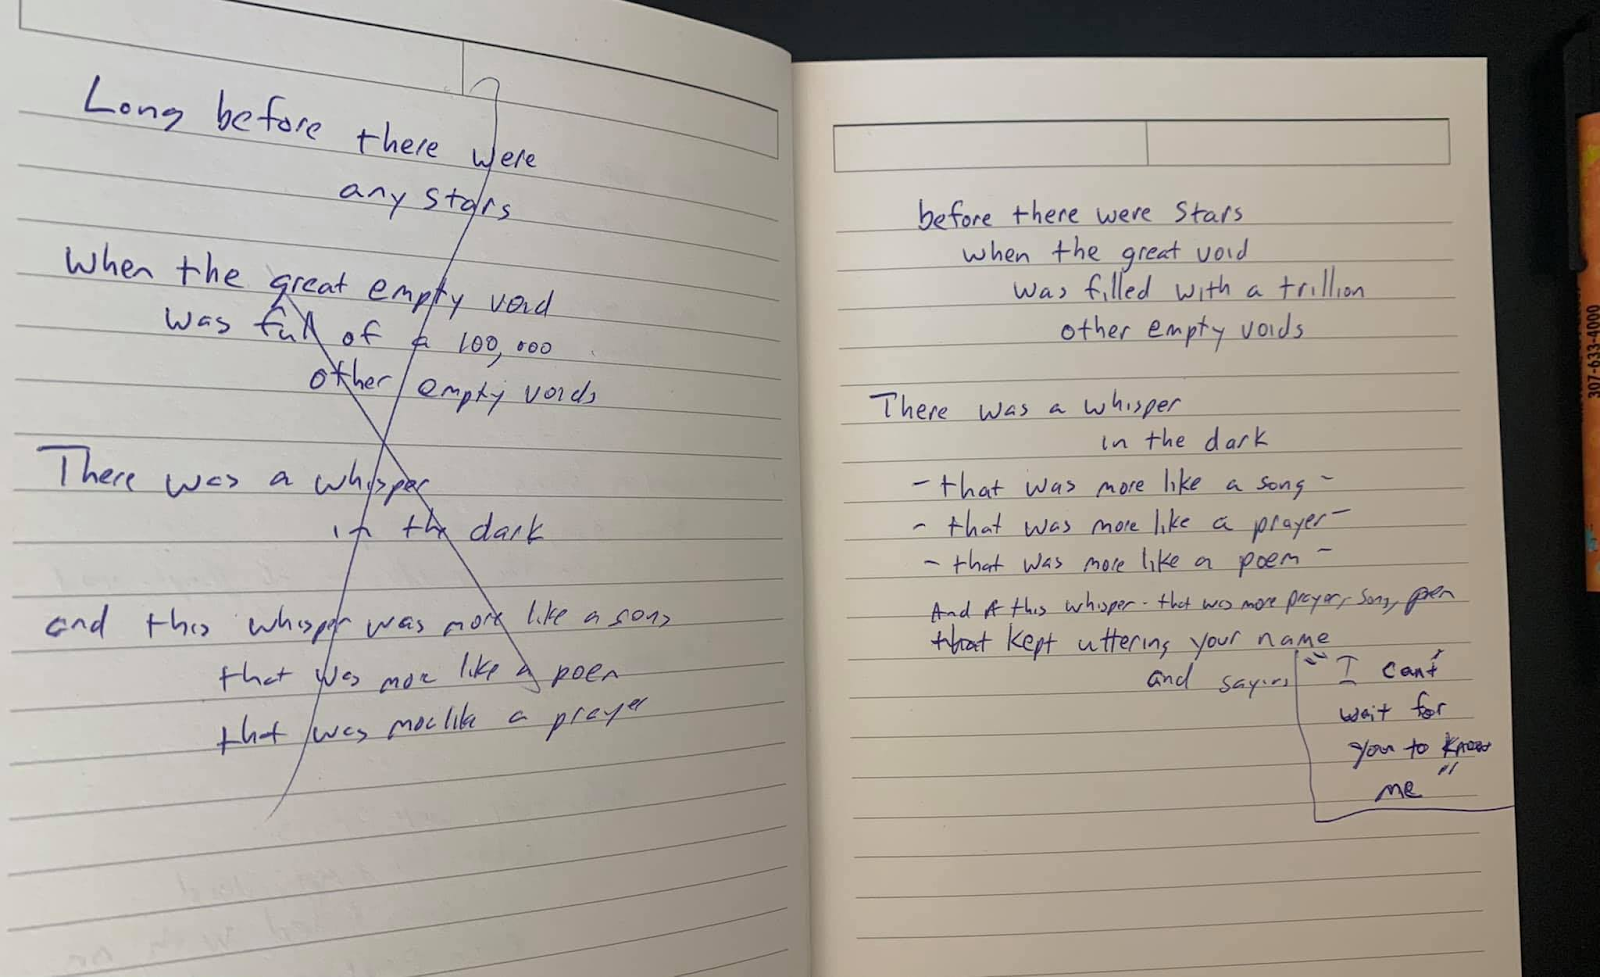 Long before there were
any stars
When the great empty void
was full of a 100,000
other empty voids
There was a whisper
in the dark
and this whisper was more like a song
that was more like a poem
that was more like a prayer
before there were stars
when the great void
was filled with a trillion
other empty voids
There was a whisper
in the dark
- that was more like a song -
- that was more like a prayer -
- that was more like a poem -
And this whisper - that was more prayer, song, poem
that kept uttering your name
and saying
"I can't
wait for
you to know
me"
307-633-4000